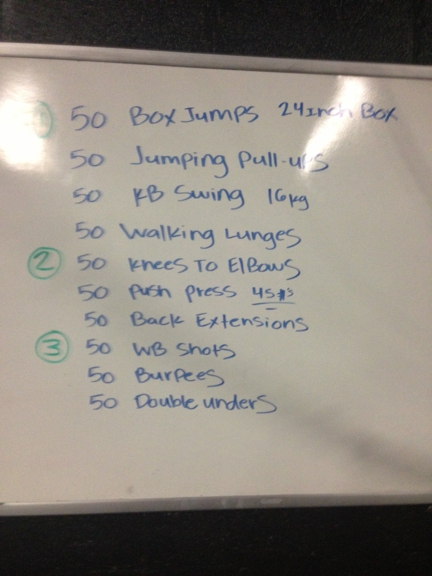 ① 50 Box Jumps 24inch Box
50 Jumping Pull-ups
50 KB Swing 16kg
50 Walking Lunges
② 50 Knees To Elbows
50 Push press 45#'s
50 Back Extensions
③ 50 WB Shots
50 Burpees
50 Double unders